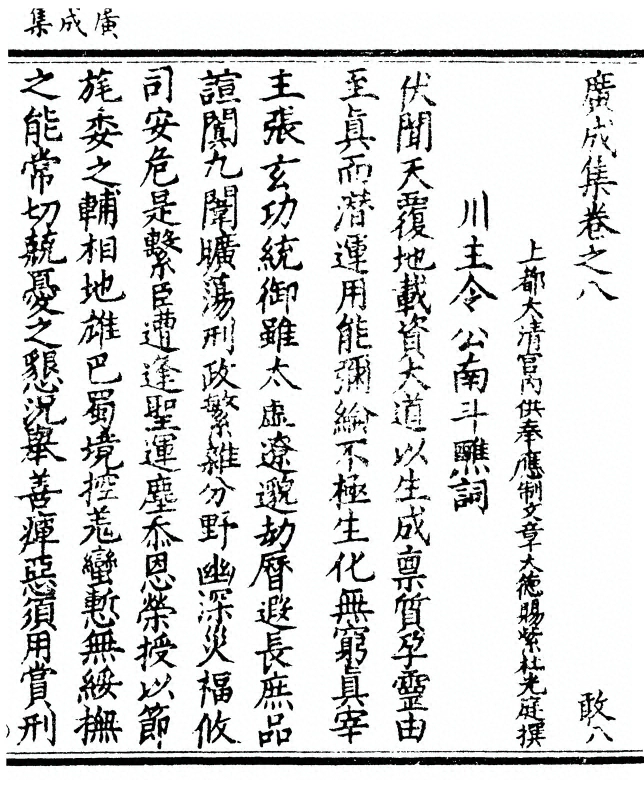 廣成集
廣成集卷之八 敢八
上都太清宫内供奉應制文章大德賜紫杜光庭撰
川主令公南斗醮詞
伏聞天覆地載資大道以生成禀質孕靈由
至真而潛運用能彌綸不極生化無窮真宰
主張玄功統御雖太虛遼邈劫曆遐長庶品
諠闐九闈曠蕩刑政繁雜分野幽深災福攸
司安危是繫臣遭逢聖運塵忝恩榮授以節
旄委之輔相地雄巴蜀境控羌蠻慙無綏撫
之能常切兢憂之懇況舉善癉惡須用賞刑